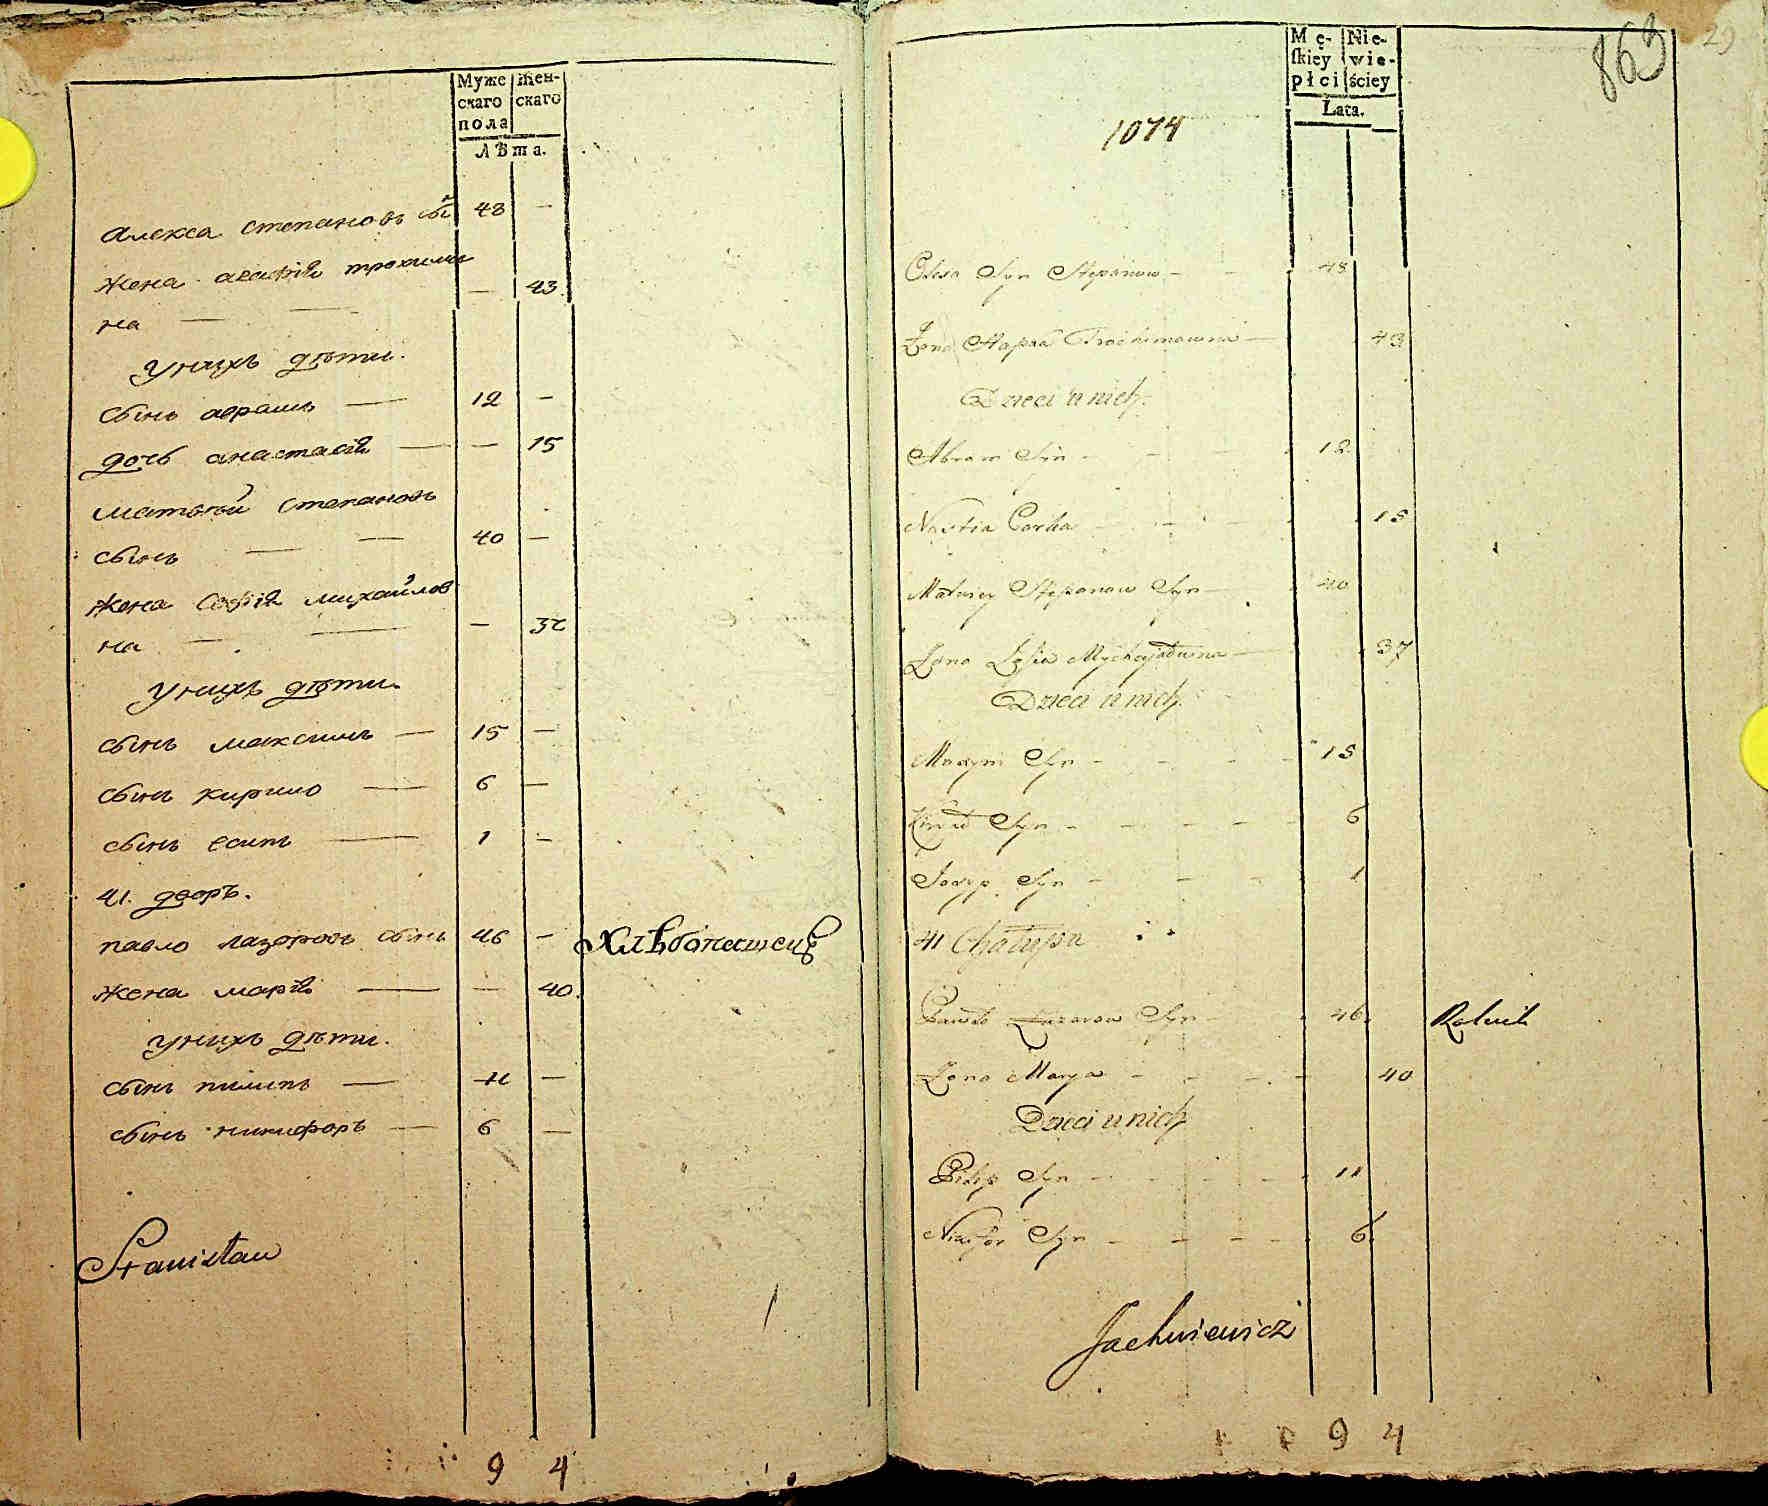 Муже Жен-
скаго скаго
пола
Лѣта.
Алекса Степановъ сы̃ 48 —
жена агафія трохимов 43
на — —
унихъ дѣти.
сынъ абрамъ — 12 —
дочь анастасія — — 15
матвѣй Степановъ
сынъ — — 40 —
жена Софія михайлов
на — — — 37
унихъ дѣти.
сынъ максимъ — 15 —
сынъ кирило — 6 —
сынъ есипъ — 1 —
41. дворъ.
павло лазоровъ сынъ 46 — Хлѣбопашецъ
жена марія — — 40.
унихъ дѣти.
сынъ пилипъ — 11 —
сынъ никифоръ — 6 —
Stanisław
9 4
863 29
Mę- Nie-
skiey wie-
płci ściey
Lata.
1074
Olexa Syn Stepanow — 48
Żona Hapka Trochimowna — 43
Dzieci u nich.
Abram Syn — 12
Nastia Corka — 15
Matwiey Stepanow Syn — 40
Żona Zofia Mychayłowna — 37
Dzieci u nich.
Maxym Syn — 15
Kiryło Syn — 6
Josyp Syn — 1
41 Chałupa
Pawło Łazarow Syn 46. Rolnik
Żona Marya — 40
Dzieci u nich
Pilip Syn — 11
Nikifor Syn — 6.
Jachniewicz
9 4